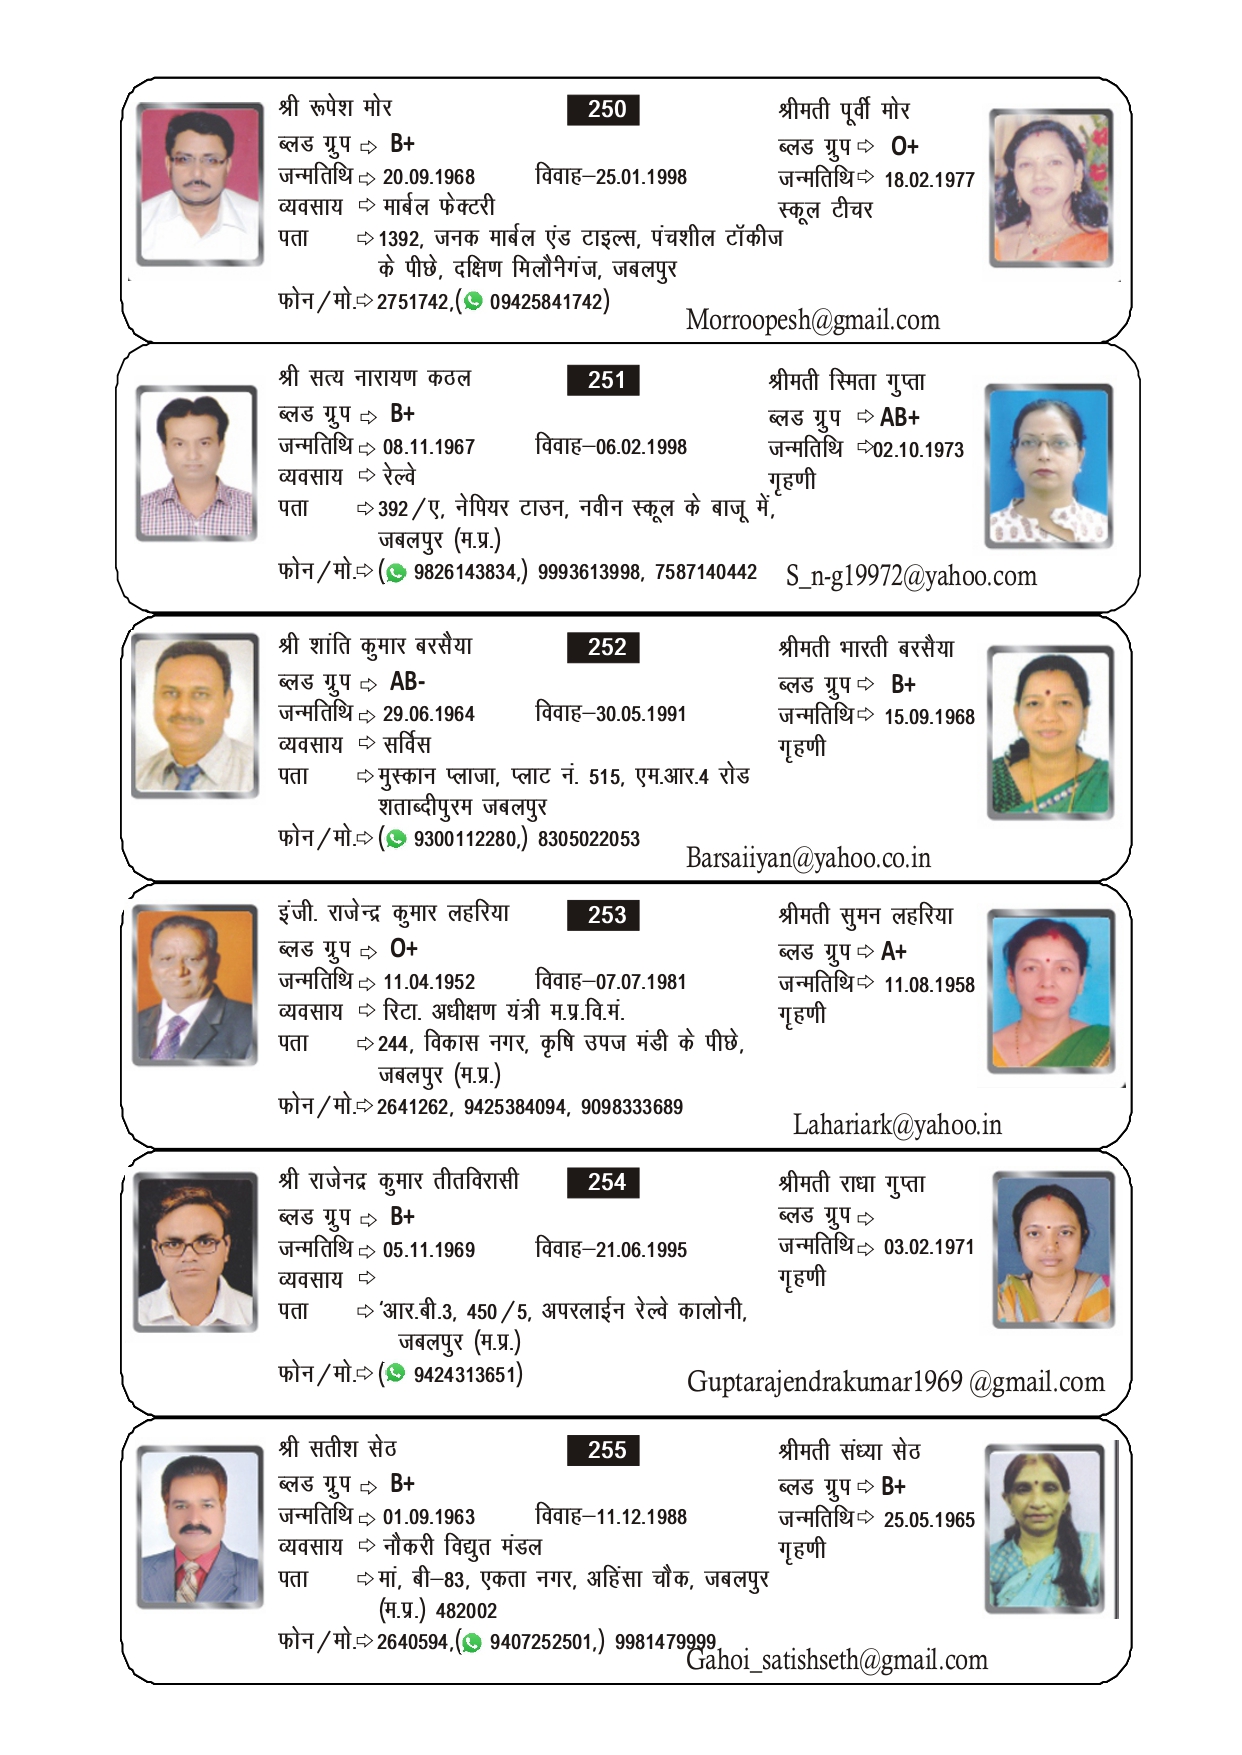 श्री रूपेश मोर 250 श्रीमती पूर्वी मोर
ब्लड ग्रुप ⇨ B+ ब्लड ग्रुप ⇨ O+
जन्मतिथि ⇨ 20.09.1968 विवाह–25.01.1998 जन्मतिथि ⇨ 18.02.1977
व्यवसाय ⇨ मार्बल फेक्टरी स्कूल टीचर
पता ⇨ 1392, जनक मार्बल एंड टाइल्स, पंचशील टॉकीज
के पीछे, दक्षिण मिलौनीगंज, जबलपुर
फोन/मो.⇨ 2751742,( 09425841742)
Morroopesh@gmail.com
श्री सत्य नारायण कठल 251 श्रीमती स्मिता गुप्ता
ब्लड ग्रुप ⇨ B+ ब्लड ग्रुप ⇨ AB+
जन्मतिथि ⇨ 08.11.1967 विवाह–06.02.1998 जन्मतिथि ⇨02.10.1973
व्यवसाय ⇨ रेल्वे गृहणी
पता ⇨ 392/ए, नेपियर टाउन, नवीन स्कूल के बाजू में,
जबलपुर (म.प्र.)
फोन/मो.⇨ ( 9826143834,) 9993613998, 7587140442 S_n-g19972@yahoo.com
श्री शांति कुमार बरसैया 252 श्रीमती भारती बरसैया
ब्लड ग्रुप ⇨ AB- ब्लड ग्रुप ⇨ B+
जन्मतिथि ⇨ 29.06.1964 विवाह–30.05.1991 जन्मतिथि ⇨ 15.09.1968
व्यवसाय ⇨ सर्विस गृहणी
पता ⇨ मुस्कान प्लाजा, प्लाट नं. 515, एम.आर.4 रोड
शताब्दीपुरम जबलपुर
फोन/मो.⇨ ( 9300112280,) 8305022053
Barsaiiyan@yahoo.co.in
इंजी. राजेन्द्र कुमार लहरिया 253 श्रीमती सुमन लहरिया
ब्लड ग्रुप ⇨ O+ ब्लड ग्रुप ⇨ A+
जन्मतिथि ⇨ 11.04.1952 विवाह–07.07.1981 जन्मतिथि ⇨ 11.08.1958
व्यवसाय ⇨ रिटा. अधीक्षण यंत्री म.प्र.वि.मं. गृहणी
पता ⇨ 244, विकास नगर, कृषि उपज मंडी के पीछे,
जबलपुर (म.प्र.)
फोन/मो.⇨ 2641262, 9425384094, 9098333689
Lahariark@yahoo.in
श्री राजेन्द्र कुमार तीतविरासी 254 श्रीमती राधा गुप्ता
ब्लड ग्रुप ⇨ B+ ब्लड ग्रुप ⇨
जन्मतिथि ⇨ 05.11.1969 विवाह–21.06.1995 जन्मतिथि ⇨ 03.02.1971
व्यवसाय ⇨ गृहणी
पता ⇨ 'आर.बी.3, 450/5, अपरलाईन रेल्वे कालोनी,
जबलपुर (म.प्र.)
फोन/मो.⇨ ( 9424313651)
Guptarajendrakumar1969 @gmail.com
श्री सतीश सेठ 255 श्रीमती संध्या सेठ
ब्लड ग्रुप ⇨ B+ ब्लड ग्रुप ⇨ B+
जन्मतिथि ⇨ 01.09.1963 विवाह–11.12.1988 जन्मतिथि ⇨ 25.05.1965
व्यवसाय ⇨ नौकरी विद्युत मंडल गृहणी
पता ⇨ मां, बी–83, एकता नगर, अहिंसा चौक, जबलपुर
(म.प्र.) 482002
फोन/मो.⇨ 2640594,( 9407252501,) 9981479999
Gahoi_satishseth@gmail.com